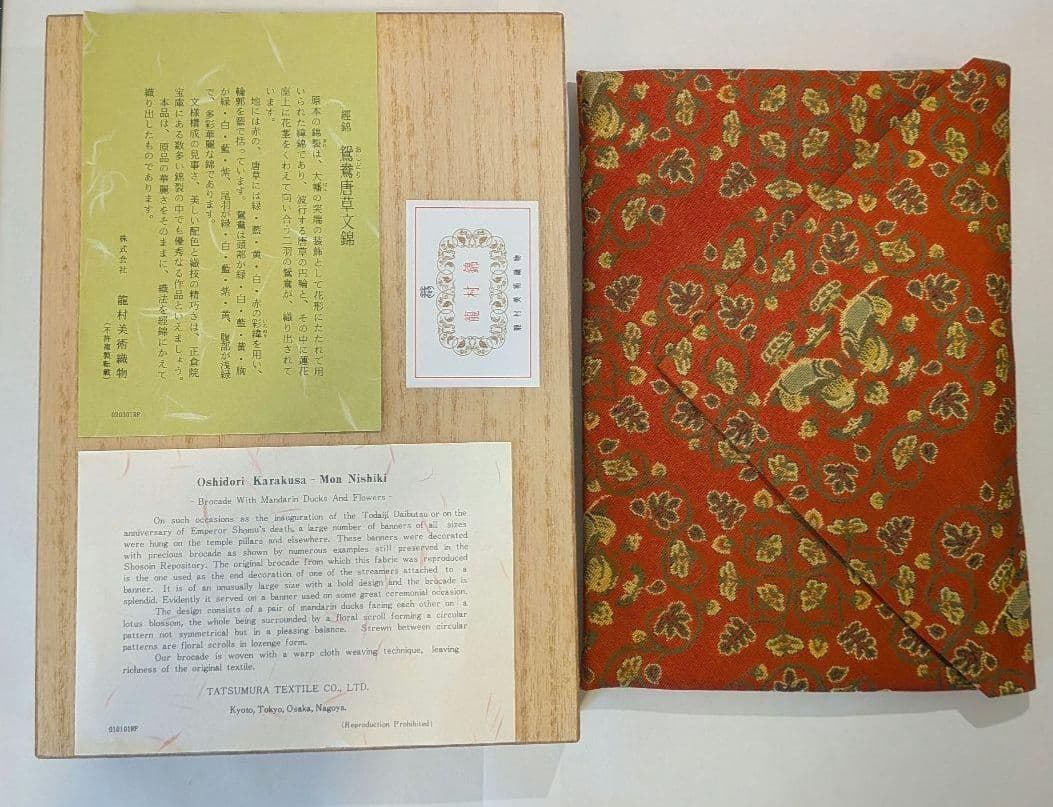 經錦
おしどり
鴛鴦唐草文錦
原本の錦裂は、大幡の突端の装飾として花形にたたれて用
いられた緯錦であり、波行する唐草の円輪と、その中に蓮花
座上に花莖をくわえて向い合う二羽の鴛鴦が、織り出されて
います。
地には赤の、唐草には緑・藍・黄・白・赤の彩緯を用い、
輪郭を藍で括っています。鴛鴦は頭部が緑・白・藍・黄・胸
が緑・白・藍・紫、尾羽が緑・白・藍・紫・黄、腹部が浅緑
で、多彩華麗な錦であります。
文様構成の見事さ、美しい配色と織技の精巧さは、正倉院
宝庫にある数多い錦裂の中でも優秀なる作品といえましょう。
本品は、原品の華麗さをそのままに、織法を經錦にかえて
織り出したものであります。
株式会社 龍村美術織物
(不許複製転載)
020301RF
龍村美術織物
龍村錦
Oshidori Karakusa - Mon Nishiki
- Brocade With Mandarin Ducks And Flowers -
On such occasions as the inauguration of the Todaiji Daibutsu or on the
anniversary of Emperor Shomu's death, a large number of banners of all sizes
were hung on the temple pillars and elsewhere. These banners were decorated
with precious brocade as shown by numerous examples still preserved in the
Shosoin Repository. The original brocade from which this fabric was reproduced
is the one used as the end decoration of one of the streamers attached to a
banner. It is of an unusually large size with a bold design and the brocade is
splendid. Evidently it served on a banner used on some great ceremonial occasion.
The design consists of a pair of mandarin ducks facing each other on a
lotus blossom, the whole being surrounded by a floral scroll forming a circular
pattern not symmetrical but in a pleasing balance. Strewn between circular
patterns are floral scrolls in lozenge form.
Our brocade is woven with a warp cloth weaving technique, leaving
richness of the original textile.
TATSUMURA TEXTILE CO., LTD.
Kyoto, Tokyo, Osaka, Nagoya.
(Reproduction Prohibited)
010101RF